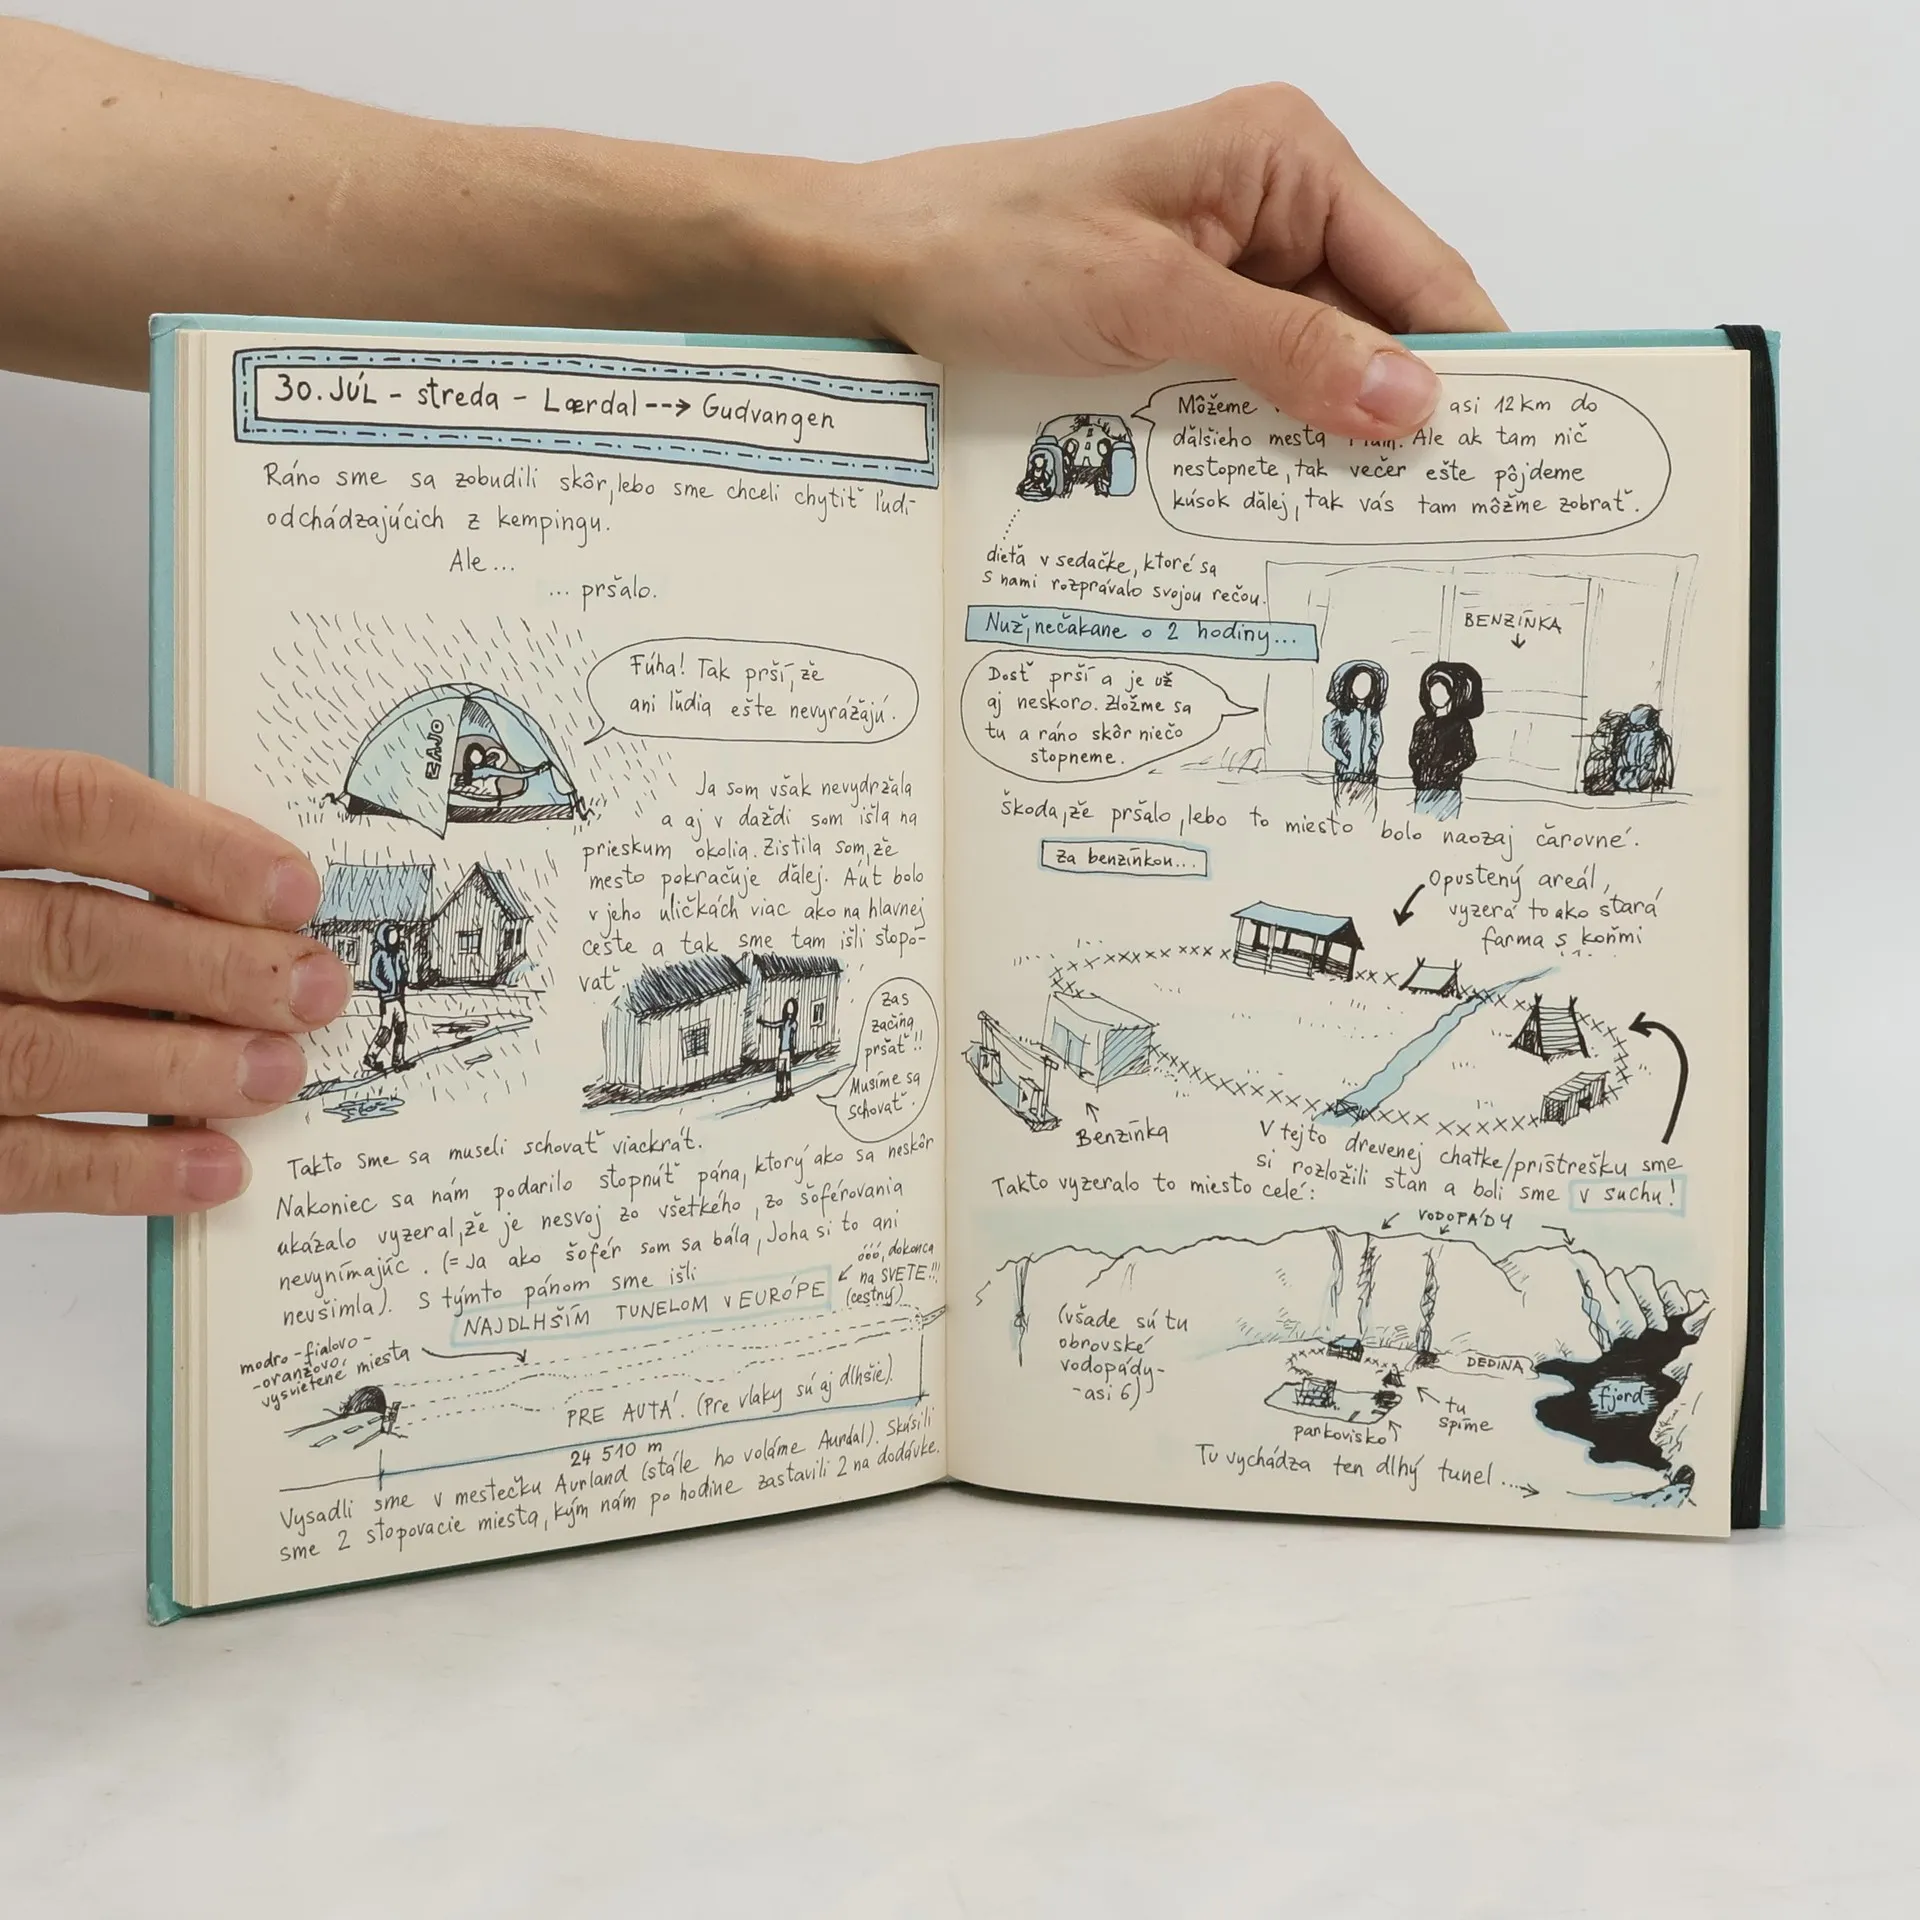 30. JÚL - streda - Lærdal --> Gudvangen
Ráno sme sa zobudili skôr, lebo sme chceli chytiť ľudí
odchádzajúcich z kempingu.
Ale...
... pršalo.
Fúha! Tak prší, že
ani ľudia ešte nevyrážajú.
ZAJO
Ja som však nevydržala
a aj v daždi som išla na
prieskum okolia. Zistila som, že
mesto pokračuje ďalej. Áut bolo
v jeho uličkách viac ako na hlavnej
ceste a tak sme tam išli stopo-
vať.
Zas
začína
pršať!!
Musíme sa
schovať.
Takto sme sa museli schovať viackrát.
Nakoniec sa nám podarilo stopnúť pána, ktorý ako sa neskôr
ukázalo vyzeral, že je nesvoj zo všetkého, zo šoférovania
nevynímajúc. (= Ja ako šofér som sa bála, Joha si to ani
nevšimla). S týmto pánom sme išli
NAJDLHŠÍM TUNELOM V EURÓPE
óóó, dokonca
na SVETE!!!
(cestný)
modro-fialovo-
-oranžovo
vysvietené miesta
PRE AUTÁ. (Pre vlaky sú aj dlhšie).
24 510 m
Vysadli sme v mestečku Aurland (stále ho voláme Aurdal). Skúsili
sme 2 stopovacie miesta, kým nám po hodine zastavili 2 na dodávke.
Môžeme asi 12 km do
ďalšieho mesta Ale ak tam nič
nestopnete, tak večer ešte pôjdeme
kúsok ďalej, tak vás tam môžme zobrať.
dieťa v sedačke, ktoré sa
s nami rozprávalo svojou rečou.
Nuž, nečakane o 2 hodiny...
BENZÍNKA
Dosť prší a je už
aj neskoro. Zložme sa
tu a ráno skôr niečo
stopneme.
Škoda, že pršalo, lebo to miesto bolo naozaj čarovné.
Za benzínkou...
Opustený areál,
vyzerá to ako stará
farma s koňmi
Benzínka
V tejto drevenej chatke/prístrešku sme
si rozložili stan a boli sme v suchu!
Takto vyzeralo to miesto celé:
VODOPÁDY
(všade sú tu
obrovské
vodopády-
-asi 6)
DEDINA
fjord
tu
spíme
parkovisko
Tu vychádza ten dlhý tunel....